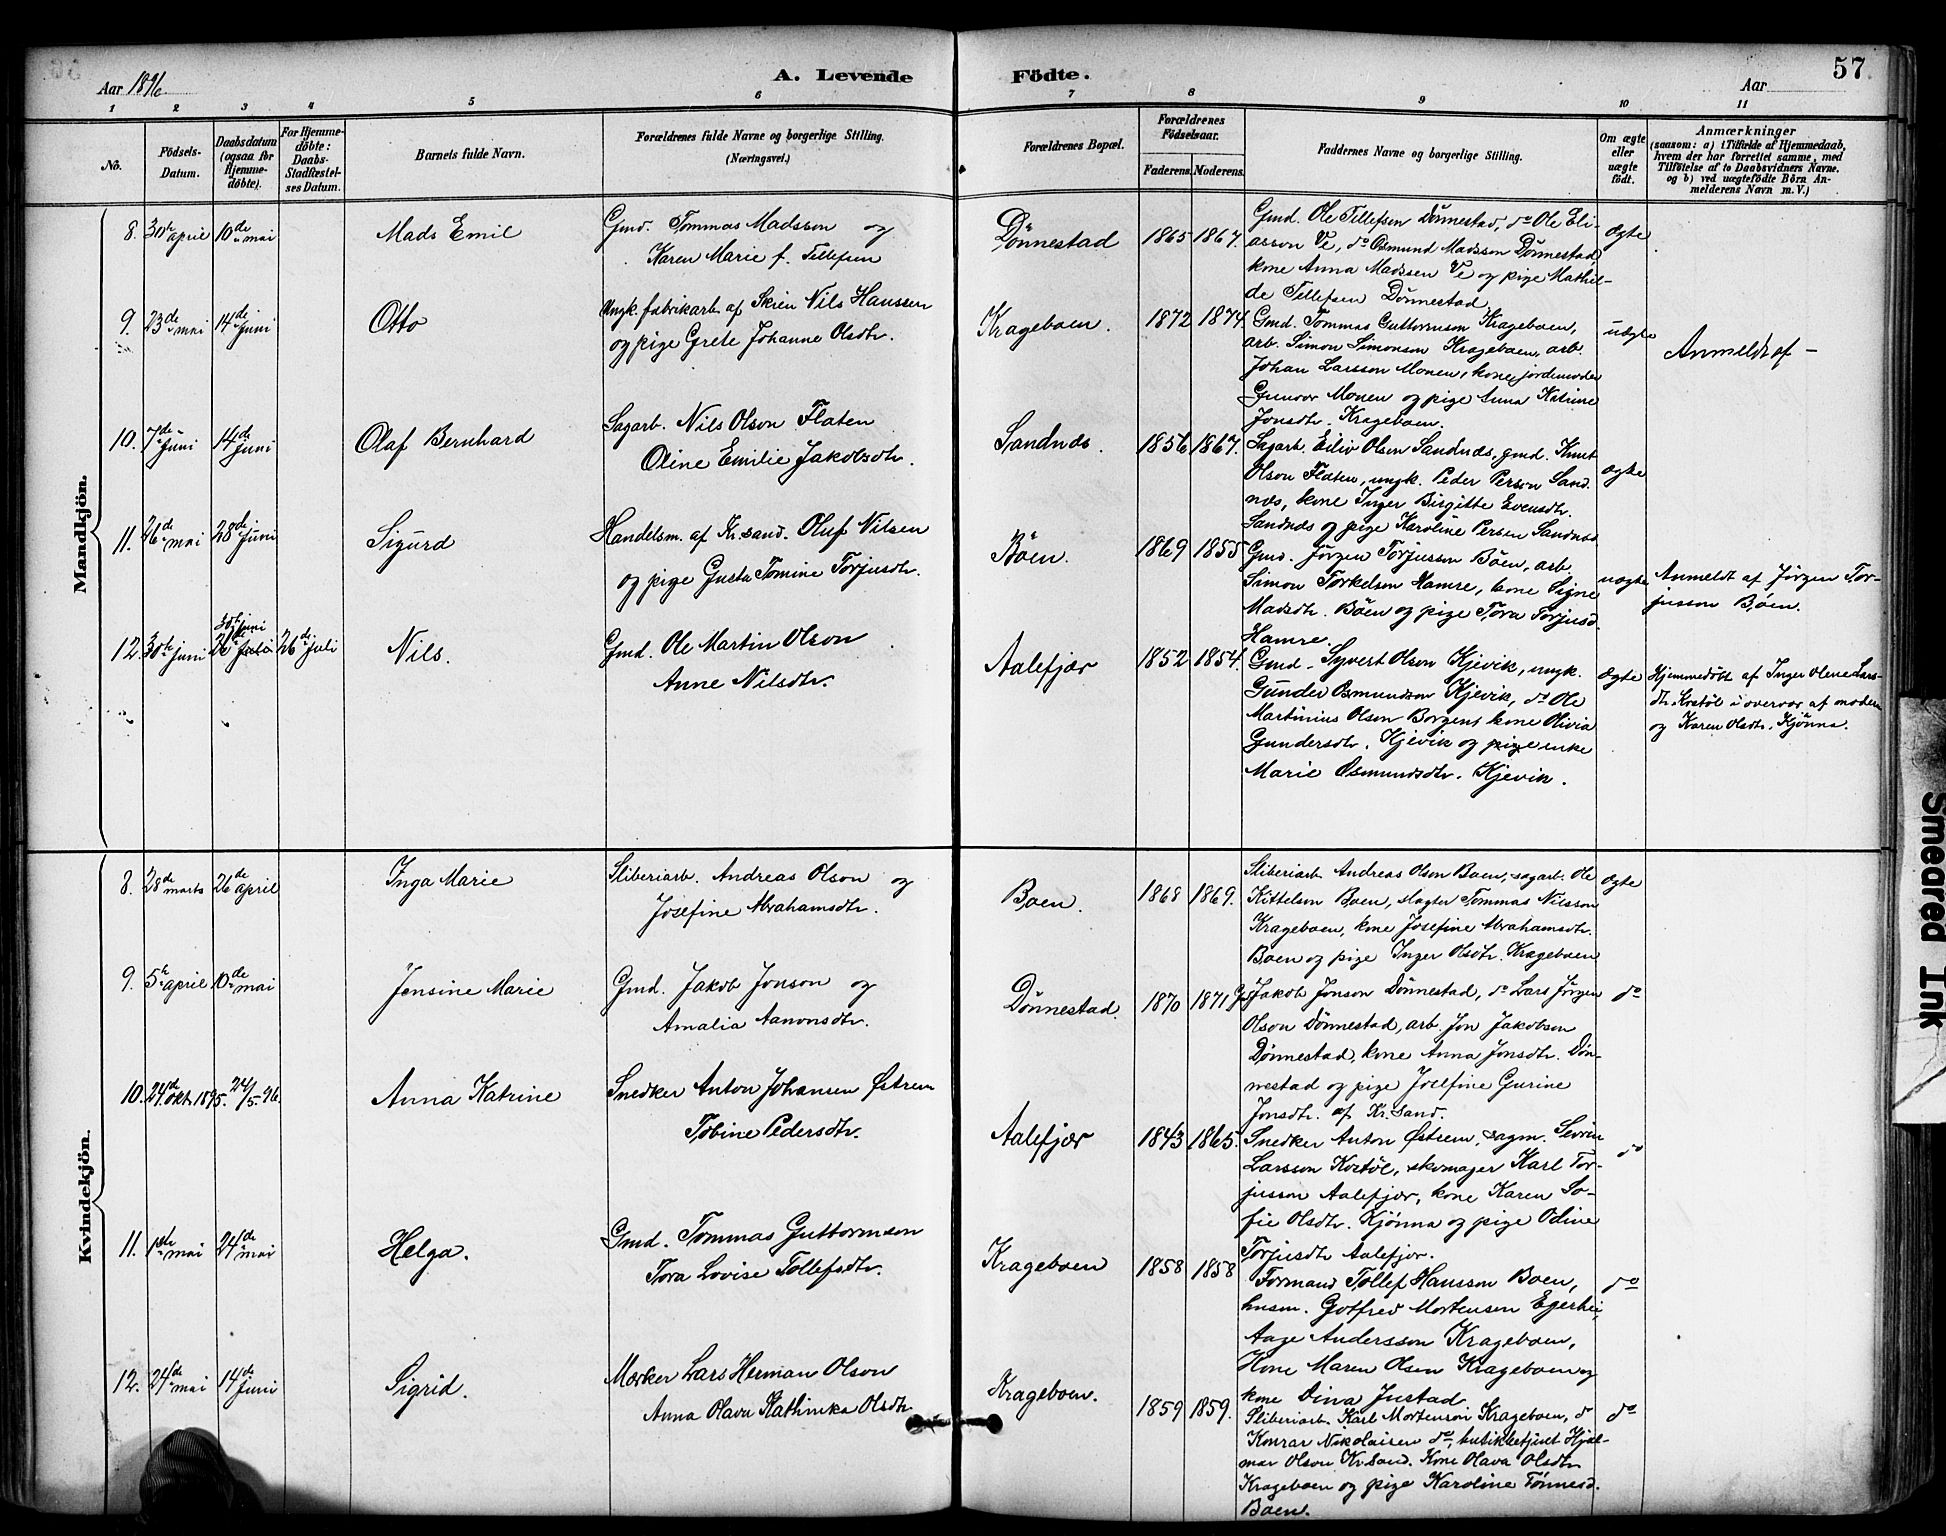 Aar 1896
A. Levende
Födte.
Aar
57
1 2 3 4 5 6 7 8 9 10 11
No.
Födsels-
Datum.
Daabsdatum
(ogsaa for
Hjemme-
döbte).
For Hjemme-
döbte:
Daabs-
Stadfæstel-
ses Datum.
Barnets fulde Navn.
Forældrenes fulde Navne og borgerlige Stilling.
(Næringsvei.)
Forældrenes Bopæl.
Forældrenes
Födselsaar.
Faderens. Moderens.
Faddernes Navne og borgerlige Stilling.
Om ægte
eller
uægte
födt.
Anmærkninger
(saasom: a) i Tilfælde af Hjemmedaab,
hvem der har forrettet samme, med
Tilföielse af to Daabsvidners Navne,
og b) ved uægtefödte Börn An-
melderens Navn m. V.)
Mandkjön.
8. 30te april 10de mai
Mads Emil
Gmd. Tommas Madsson og
Karen Marie f. Tellefsen
Dönnestad
1865 1867.
Gmd. Ole Tellefsen Dönnestad, do Ole Eli-
asson Ve, do Osmund Madsson Dönnestad,
kone Anna Madssen Ve og pige Mathil-
de Tellefsen Dönnestad
ægte
9. 23de mai 14de juni
Otto
Ungk. fabrikarb. af Skien Nils Hanssen
og pige Grete Johanne Olsdtr.
Krageboen.
1872 1874
Gmd. Tommas Guttormson Krageboen,
arb. Simon Simonson Krageboen, arb.
Johan Larsson Monen, kone, jordemoder
Gunvor Monen og pige Anna Katrine
Jonsdtr. Krageboen.
uægte
Anmeldt af —
10. 7de juni 14de juni
Olaf Bernhard
Sagarb. Nils Olson Flaten
Oline Emilie Jakobsdtr.
Sandnæs.
1856 1867.
Sagarb. Eiliv Olsen Sandnæs, gmd. Knut
Olson Flaten, ungk. Peder Person Sand
næs, kone Inger Birgitte Evensdtr.
Sandnæs og pige Karoline Persen Sandnæs
ægte
11. 26de mai 28de juni
Sigurd
Handelsm. af Kr.sand. Oluf Nilsen
og pige Gusta Tomine Torjusdtr.
Böen.
1869 1855
Gmd. Jörgen Torjusson Böen, arb.
Simon Torkelson Hamre, kone Signe
Madsdtr. Böen og pige Tora Torjusd.
Hamre.
uægte
Anmeldt af Jörgen Tor-
jusson Böen.
12. 30te juni
30te juni
26de juli
26de juli
Nils.
Gmd. Ole Martin Olson
Anne Nilsdtr.
Aalefjær
1852 1854.
Gmd. Syvert Olson Kjevik, ungk.
Gunder Osmundson Kjevik, do Ole
Martinius Olson Borgens, kone Olivia
Gundersdtr. Kjevik og pige enke
Marie Osmundsdtr. Kjevik.
ægte
Hjemmedöbt af Inger Olene Lars-
dtr. Kostöl i overvær af moderen
og Karen Olsdtr. Kjönna.
Kvindekjön.
8. 28de marts 26de april
Inga Marie
Sliberiarb. Andreas Olson og
Josefine Abrahamsdtr.
Boen.
1868 1869.
Sliberiarb. Andreas Olson Boen, sagarb. Ole
Kittelson Boen, slagter Tommas Nilsson
Krageboen, kone Josefine Abrahamsdtr.
Boen og pige Inger Olsdtr. Krageboen
ægte
9. 5te april 10de mai
Jensine Marie
Gmd. Jakob Jonson og
Amalia Aanonsdtr.
Dönnestad.
1870 1871
Jakob Jonson Dönnestad, do Lars Jörgen
Olson Dönnestad, arb. Jon Jakobson
Dönnestad, kone Anna Jonsdtr. Dön-
nestad og pige Josefine Gurine
Jonsdtr. af Kr.sand.
do
10. 24de okt. 1895. 24/5.96.
Anna Katrine
Snedker Anton Johansen Østrem
Tobine Pedersdtr.
Aalefjær
1843 1865.
Snedker Anton Østrem, sagm. Severin
Larsson Kostöl, skomager Karl Tor-
jusson Aalefjær, kone Karen So-
fie Olsdtr. Kjönna og pige Odine
Torjusdtr Aalefjær.
do
11. 1ste mai 24de mai
Helga.
Gmd. Tommas Guttormson
Tora Lovise Tollefsdtr.
Krageboen
1858 1858
Formand Tollef Hansson Boen,
husm. Gotfred Mortensen Egerhei,
Aage Andersson Krageboen,
Kone Maren Olsen Krageboen og
kone Dina Justad
do
12. 24de mai 14de juni
Sigrid.
Mærker Lars Herman Olson
Anna Olava Kathinka Olsdtr
Krageboen.
1859 1859.
Sliberiarb. Karl Mortenson Krageboen, do
Konrad Nikolaisen do, butikbetjent Hjal-
mar Olson Kr.sand. Kone Olava Olsdtr
Krageboen og pige Karoline Tönnesd.
Boen.
do
Smeared Ink